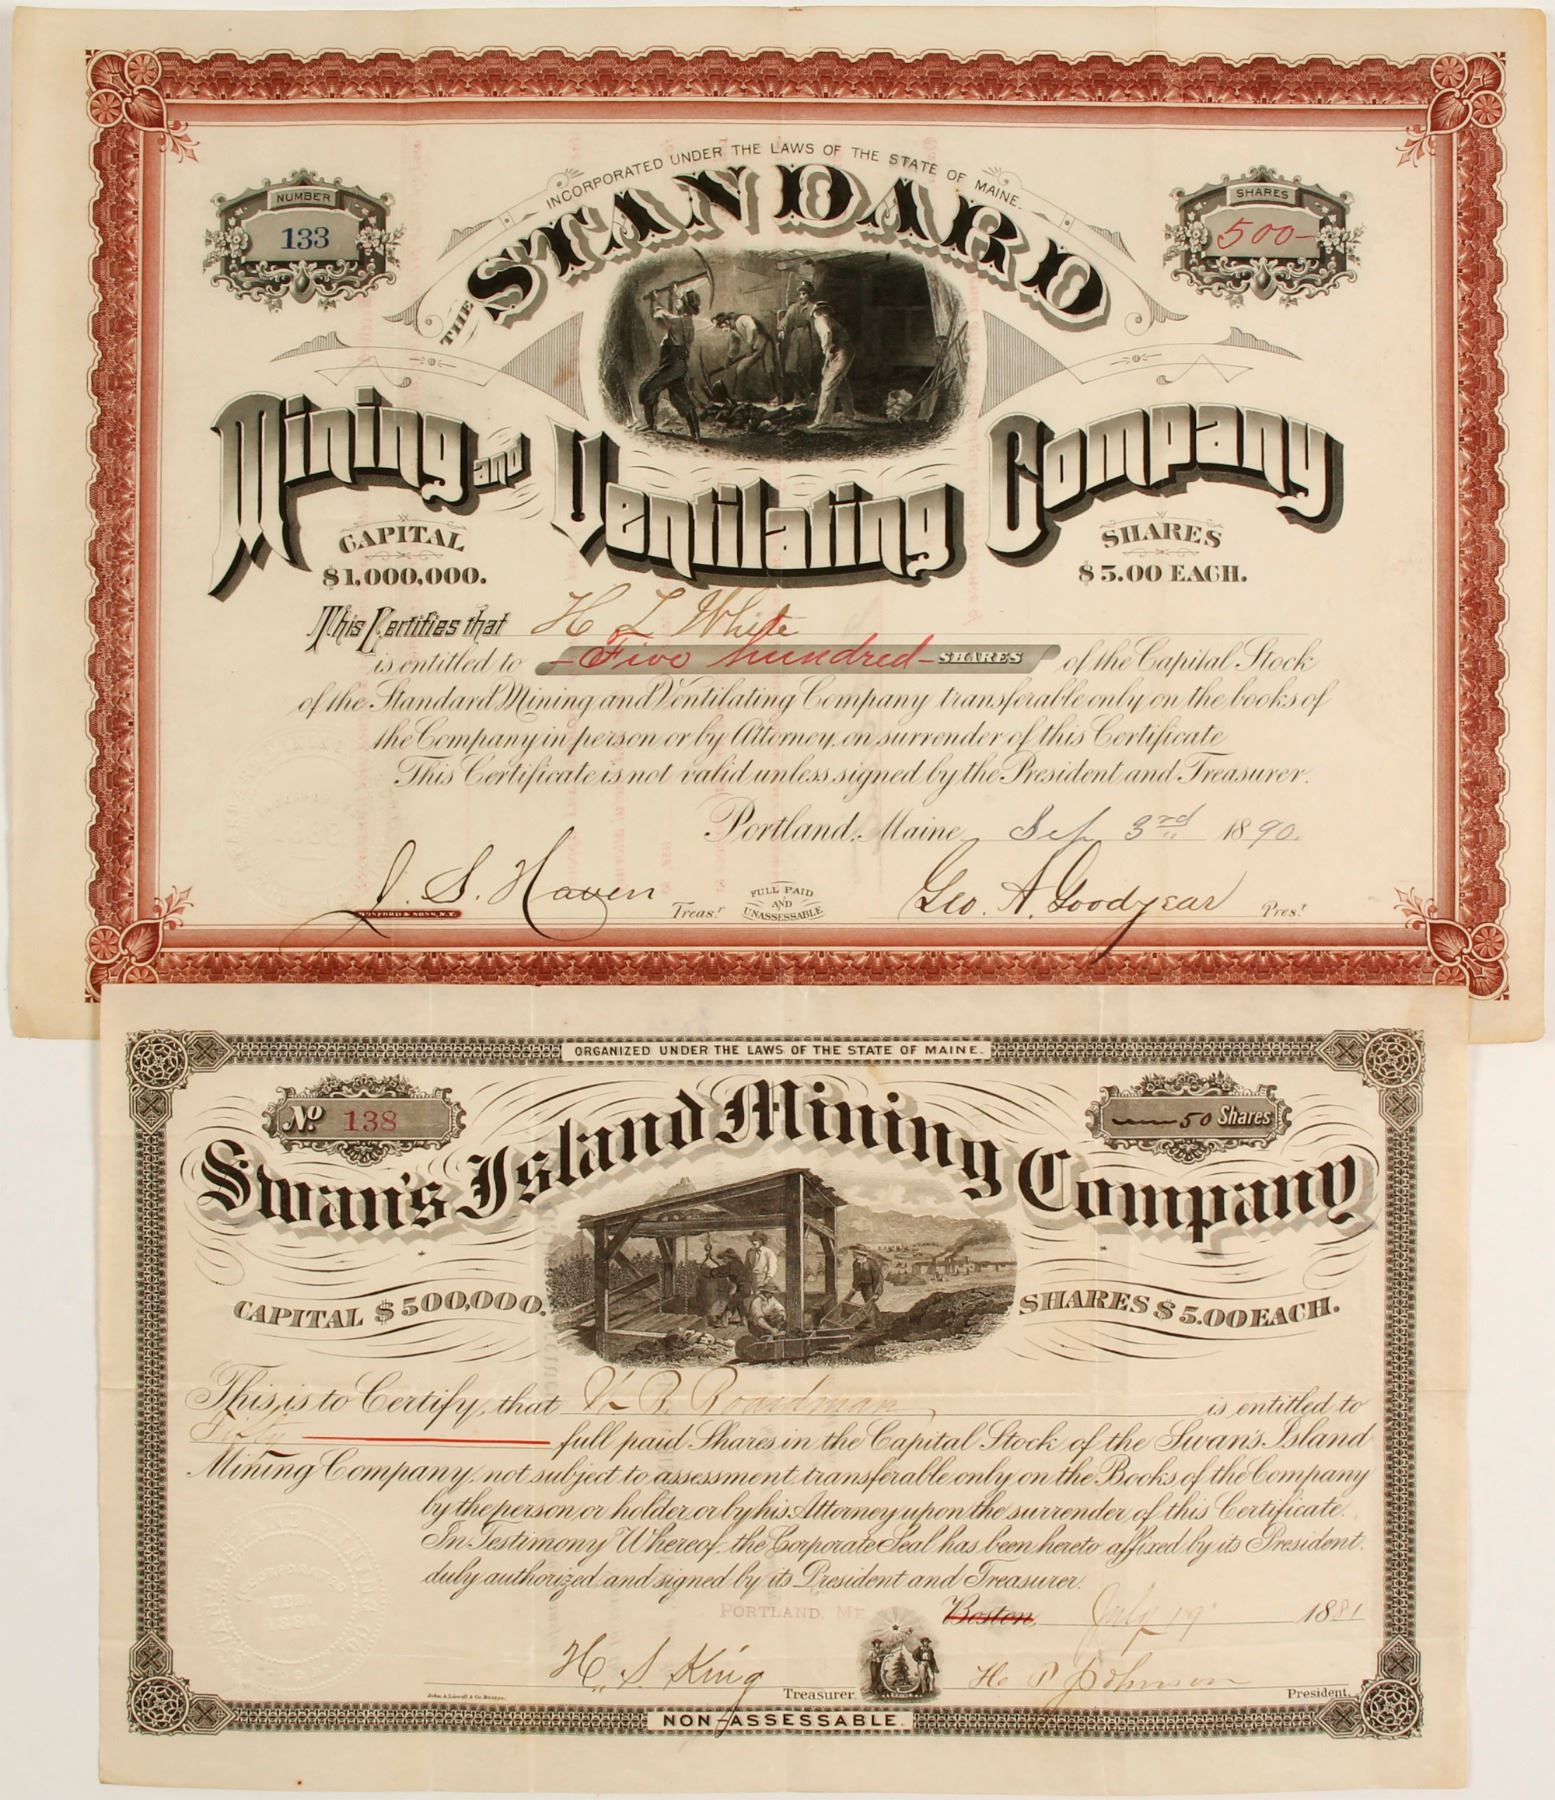 INCORPORATED UNDER THE LAWS OF THE STATE OF MAINE.
NUMBER
133
SHARES
500-
THE STANDARD
Mining and Ventilating Company
CAPITAL
$1,000,000.
SHARES
$5.00 EACH.
This Certifies that H L White
is entitled to -Five hundred- SHARES of the Capital Stock
of the Standard Mining and Ventilating Company transferable only on the books of
the Company in person or by Attorney, on surrender of this Certificate
This Certificate is not valid unless signed by the President and Treasurer.
Portland, Maine, Sep 3rd 1890.
J. S. Haven Treas.r
FULL PAID
AND
UNASSESSABLE
Geo. A. Goodyear Pres.t
& SONS, N.Y.
ORGANIZED UNDER THE LAWS OF THE STATE OF MAINE.
No. 138
50 Shares
Swan's Island Mining Company
CAPITAL $500,000.
SHARES $5.00 EACH.
This is to Certify, that R. Boardman is entitled to
Fifty full paid Shares in the Capital Stock of the Swan's Island
Mining Company, not subject to assessment, transferable only on the Books of the Company
by the person or holder or by his Attorney upon the surrender of this Certificate.
In Testimony Whereof, the Corporate Seal has been hereto affixed by its President.
duly authorized, and signed by its President and Treasurer.
PORTLAND, ME Boston, July 19 1881
H. S. King Treasurer.
H. P. Johnson President.
NON-ASSESSABLE.